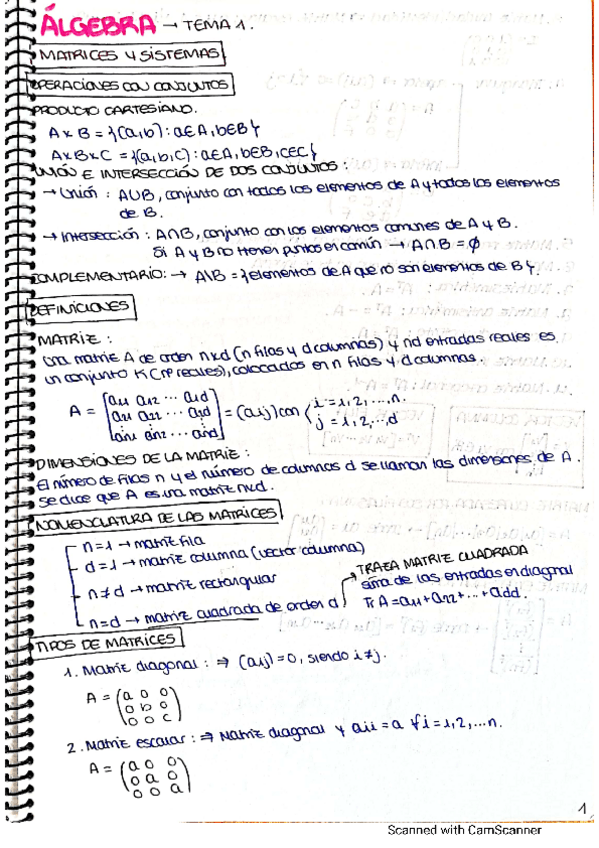 ÁLGEBRA → TEMA 1.
MATRICES Y SISTEMAS
OPERACIONES CON CONJUNTOS
PRODUCTO CARTESIANO.
A x B = {(a,b) : a∈A, b∈B}
A x B x C = {(a,b,c) : a∈A, b∈B, c∈C}
UNIÓN E INTERSECCIÓN DE DOS CONJUNTOS :
→ Unión : A∪B, conjunto con todos los elementos de A y todos los elementos
de B.
→ Intersección : A∩B, conjunto con los elementos comunes de A y B.
Si A y B no tienen puntos en común → A∩B = ∅
COMPLEMENTARIO: → A\B = {elementos de A que no son elementos de B}.
DEFINICIONES
MATRIZ :
Una matriz A de orden nxd (n filas y d columnas) y nd entradas reales es
un conjunto K (nº reales), colocados en n filas y d columnas.
A = [a11 a12 ... a1d
a21 a22 ... a2d
an1 an2 ... and] = (aij) con { i = 1, 2, ..., n.
j = 1, 2, ..., d
DIMENSIONES DE LA MATRIZ :
El número de filas n y el número de columnas d se llaman las dimensiones de A.
Se dice que A es una matriz nxd.
NOMENCLATURA DE LAS MATRICES
n = 1 → matriz fila
d = 1 → matriz columna (vector columna)
n ≠ d → matriz rectangular
n = d → matriz cuadrada de orden d
TRAZA MATRIZ CUADRADA
suma de las entradas en diagonal
Tr A = a11 + a22 + ... + add.
TIPOS DE MATRICES
1. Matriz diagonal : ⇒ (aij) = 0, siendo i ≠ j.
A = (a 0 0
0 b 0
0 0 c)
2. Matriz escalar : ⇒ Matriz diagonal y aii = a ∀ i = 1, 2, ... n.
A = (a 0 0
0 a 0
0 0 a)
1
Scanned with CamScanner